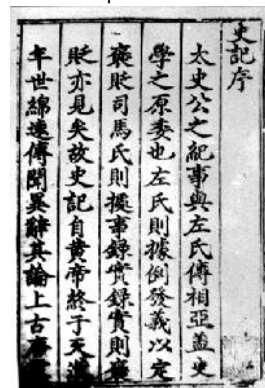 史記序
太史公之紀事與左氏傳相亞蓋史
學之原委也左氏則據例發義以定
褒貶司馬氏則摭事錄實錄實則褒
貶亦見矣故史記自黃帝終于天漢
年世綿遠傳聞異辭其論上古